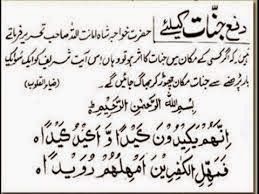 دفع جنّات کیلئے
حضرت خواجہ شاہ امانت اللہ صاحب تحریر فرماتے
ہیں کہ اگر کسی کے مکان میں جنات کا اثر ہو تو وہاں اس آیت شریف کو ایک سو ایک
بار پڑھنے سے جنات مکان چھوڑ کر بھاگ جائیں گے۔ (ضیاء القلوب)
بِسْمِ اللّٰهِ الرَّحْمٰنِ الرَّحِيْمِ
اِنَّهُمْ يَكِيْدُوْنَ كَيْدًا وَّ اَكِيْدُ كَيْدًا
فَمَهِّلِ الْكٰفِرِيْنَ اَمْهِلْهُمْ رُوَيْدًا